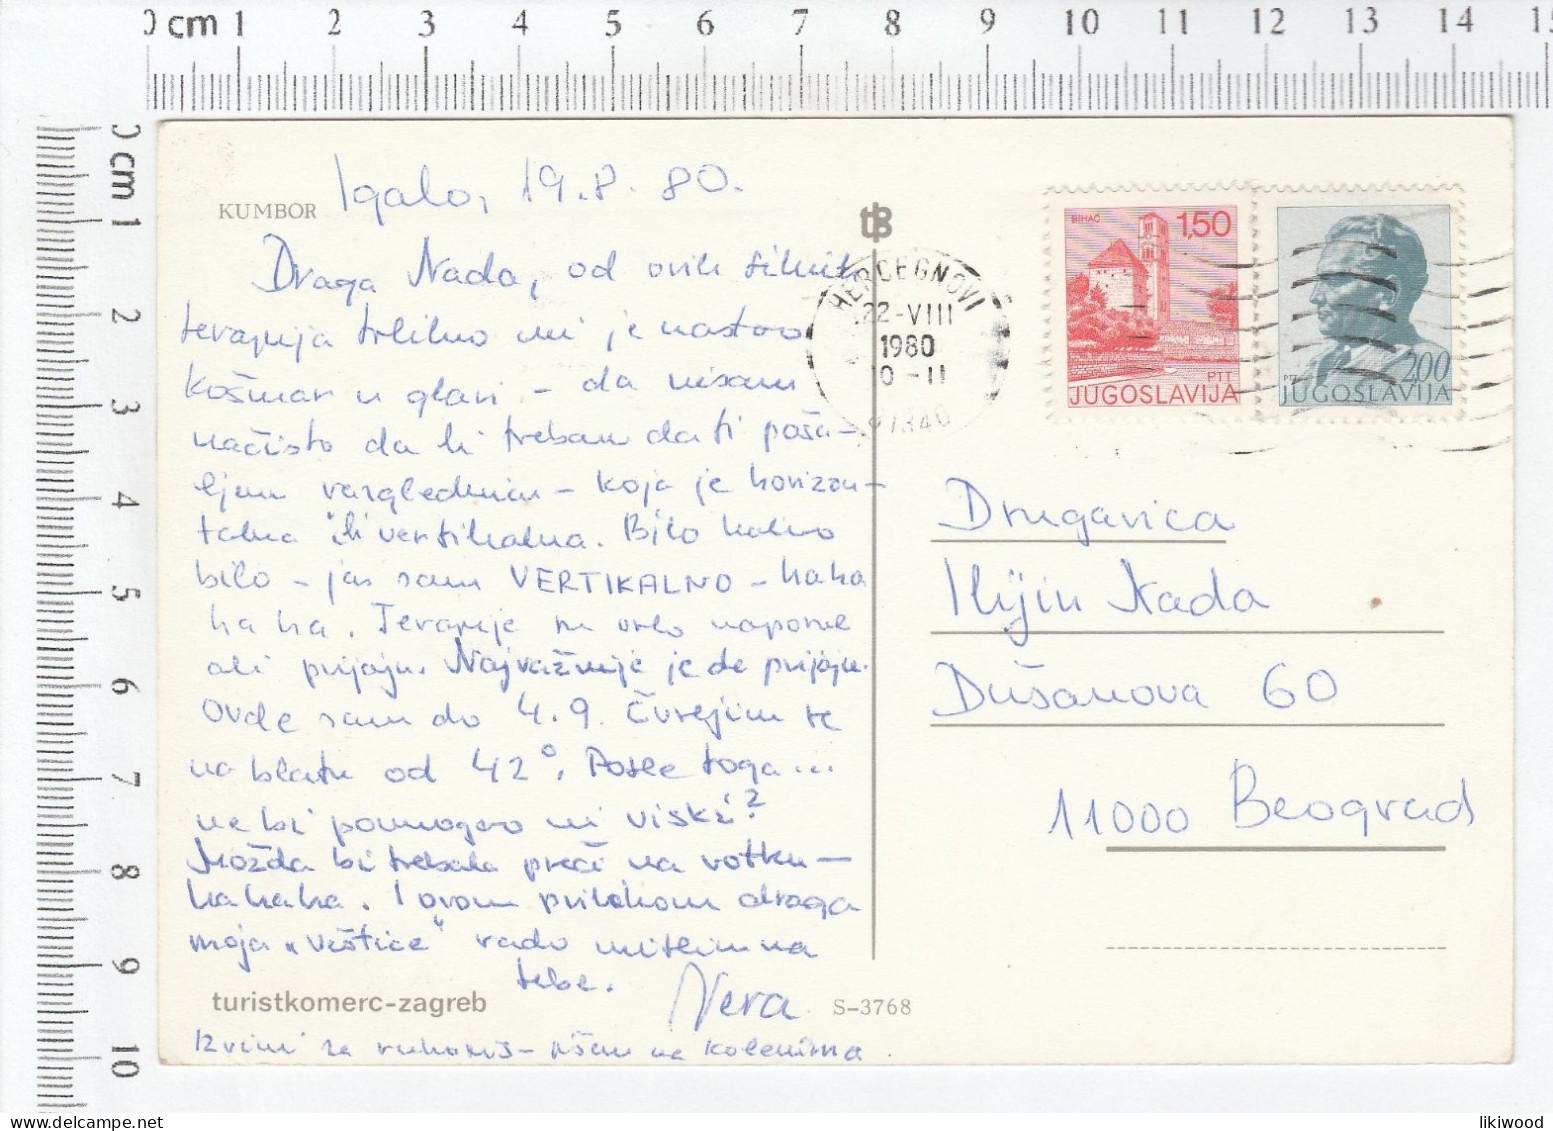 0 cm 1 2 3 4 5 6 7 8 9 10 11 12 13 14 15
0 cm 1 2 3 4 5 6 7 8 9 10
KUMBOR
Igalo, 19.8.80.
Draga Nada, od ovih silnih
terapija toliko mi je nastao
košmar u glavi – da nisam
načisto da li trebam da ti poša-
ljem razglednicu – koja je horizon-
talna ili vertikalna. Bilo kako
bilo – jas sam VERTIKALNO – haha
ha ha. Terapije su vrlo naporne
ali prijaju. Najvažnije je da prijaju.
Ovde sam do 4.9. Čurejim se
na blatu od 42°. Posle toga...
ne bi pomogao ni viski?
Možda bi trebala preći na votku –
hahaha. I ovom prilikom draga
moja „veštice" rado mislim na
tebe.
Nera
Izvini za rukopis – pišem na kolenima
turistkomerc-zagreb
S-3768
HERCEGNOVI
22-VIII
1980
10-11
81340
BIHAĆ
1,50
PTT
JUGOSLAVIJA
2,00
PTT
JUGOSLAVIJA
Drugarica
Ilijin Nada
Dušanova 60
11000 Beograd
likiwood